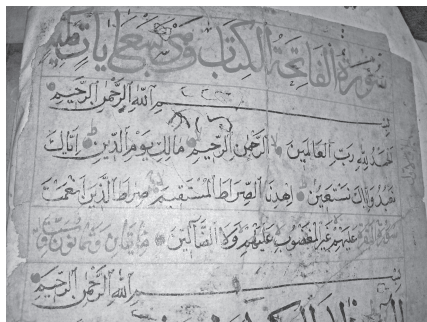 سورة الفاتحة الكتاب وهي سبع آيات
بسم الله الرحمن الرحيم
الحمد لله رب العالمين الرحمن الرحيم مالك يوم الدين اياك
نعبد واياك نستعين اهدنا الصراط المستقيم صراط الذين انعمت
عليهم غير المغضوب عليهم ولا الضآلين مايتان وثمانون وست
بسم الله الرحمن الرحيم